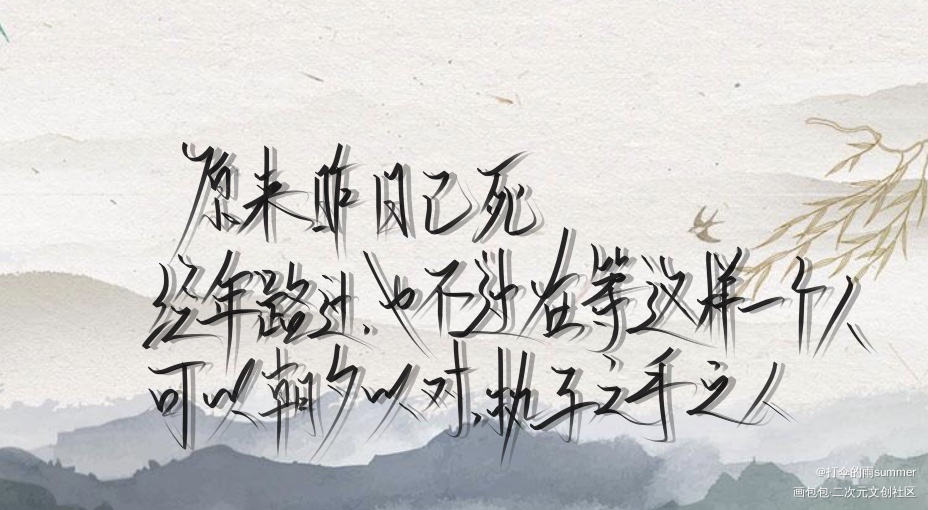 原来昨日已死
经年路过,也不过在等这样一个人
可以朝夕以对,执子之手之人
@打伞的雨summer
画包包·二次元文创社区